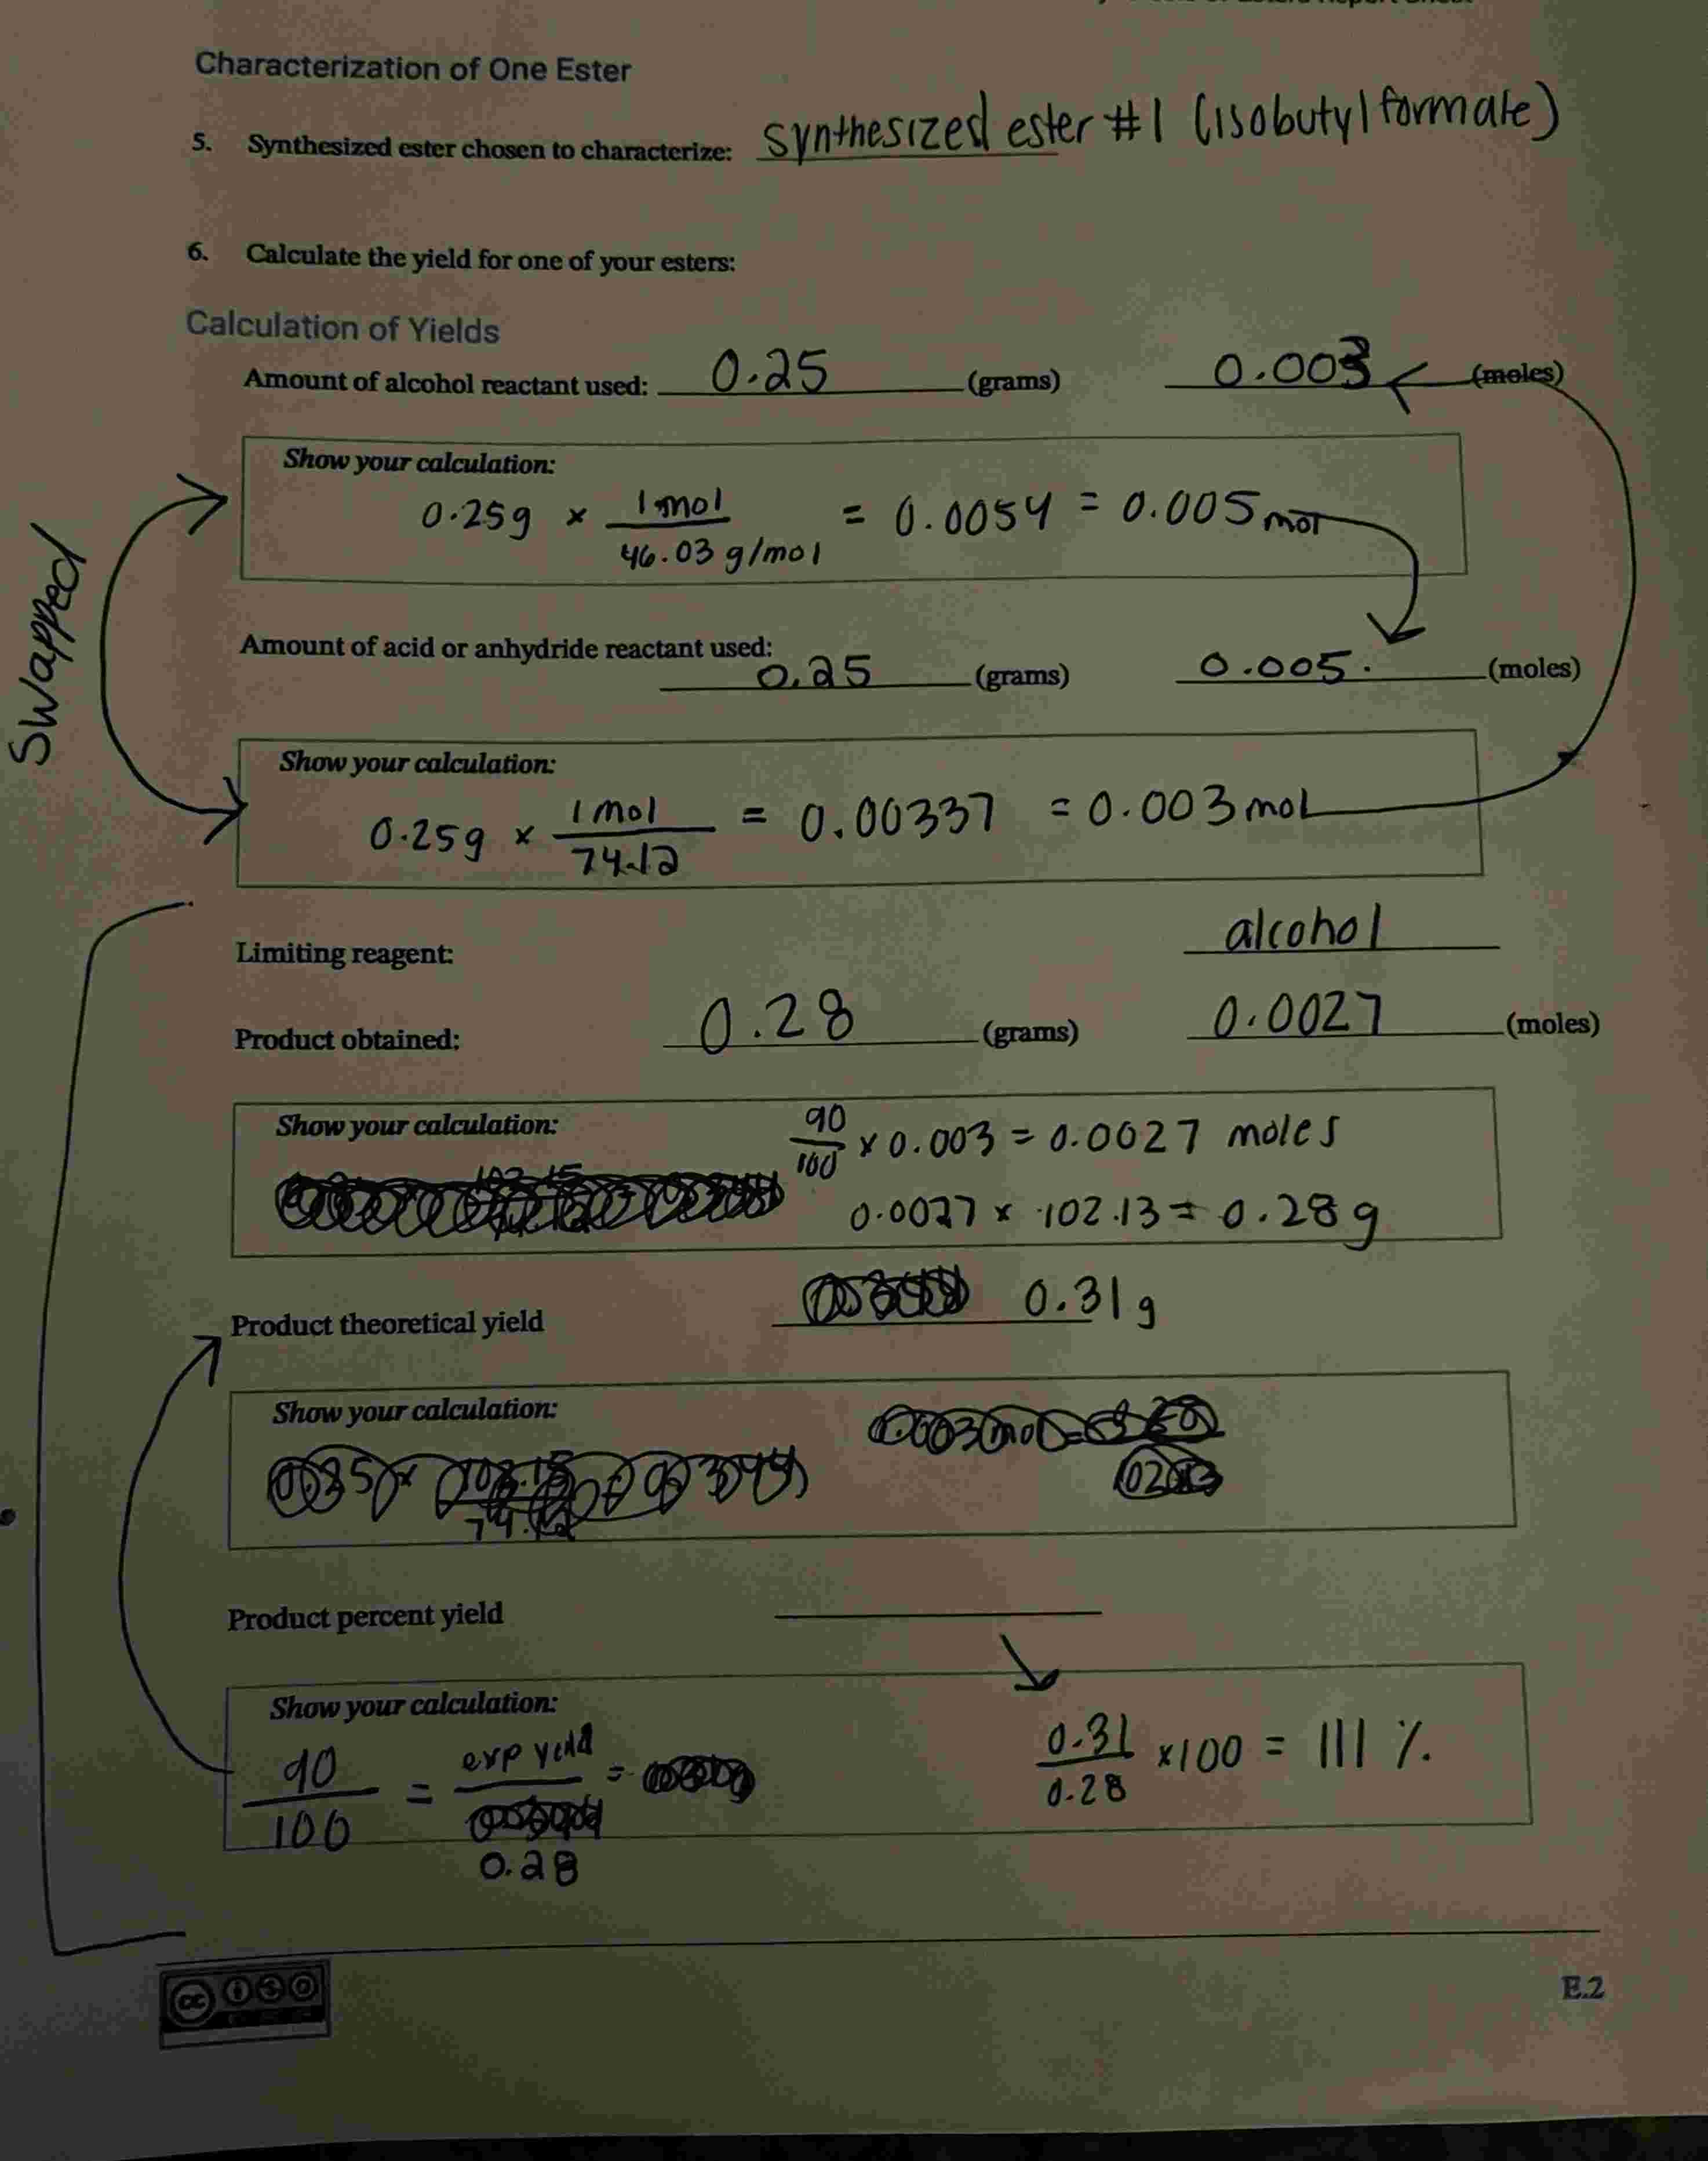 Characterization of One Ester
5. Synthesized ester chosen to characterize: synthesized ester #1 (isobutyl formate)
6. Calculate the yield for one of your esters:
Calculation of Yields
Amount of alcohol reactant used: 0.25 (grams) 0.003 (moles)
Show your calculation:
0.25g × 1 mol / 46.03 g/mol = 0.0054 = 0.005 mol
Swapped
Amount of acid or anhydride reactant used: 0.25 (grams) 0.005. (moles)
Show your calculation:
0.25g × 1 mol / 74.12 = 0.00337 = 0.003 mol
Limiting reagent: alcohol
Product obtained: 0.28 (grams) 0.0027 (moles)
Show your calculation: 90/100 × 0.003 = 0.0027 moles
0.0027 × 102.13 = 0.28 g
Product theoretical yield 0.31 g
Show your calculation:
Product percent yield
Show your calculation:
90/100 = exp yeild / 0.28 =
0.31/0.28 ×100 = 111 %.
cc
E.2